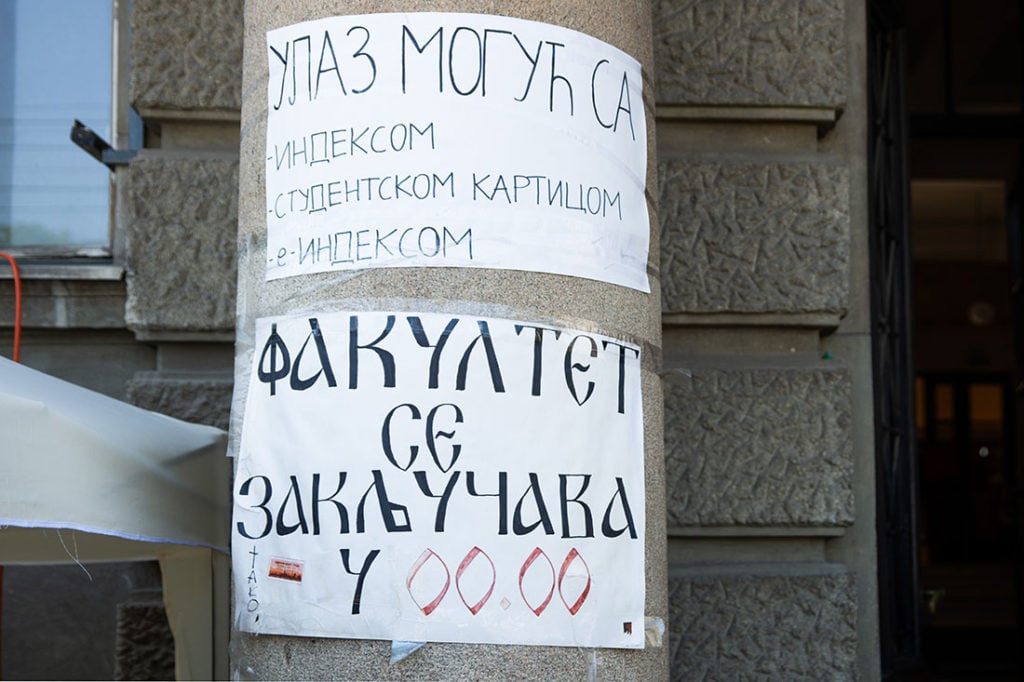 УЛАЗ МОГУЋ СА
-ИНДЕКСОМ
-СТУДЕНТСКОМ КАРТИЦОМ
-е-ИНДЕКСОМ
ФАКУЛТЕТ
СЕ
ЗАКЉУЧАВА
У 00.00
ТАКО